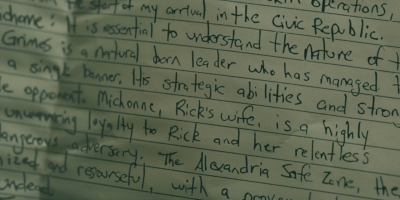 operations,
the start of my arrival in the Civic Republic.
Michonne: It is essential to understand the nature of
Grimes is a natural born leader who has managed
a single banner. His strategic abilities and
opponent. Michonne, Rick's wife, is a highly
unwavering loyalty to Rick and her relentless
dangerous adversary. The Alexandria Safe Zone, the
and resourseful, with a
undead